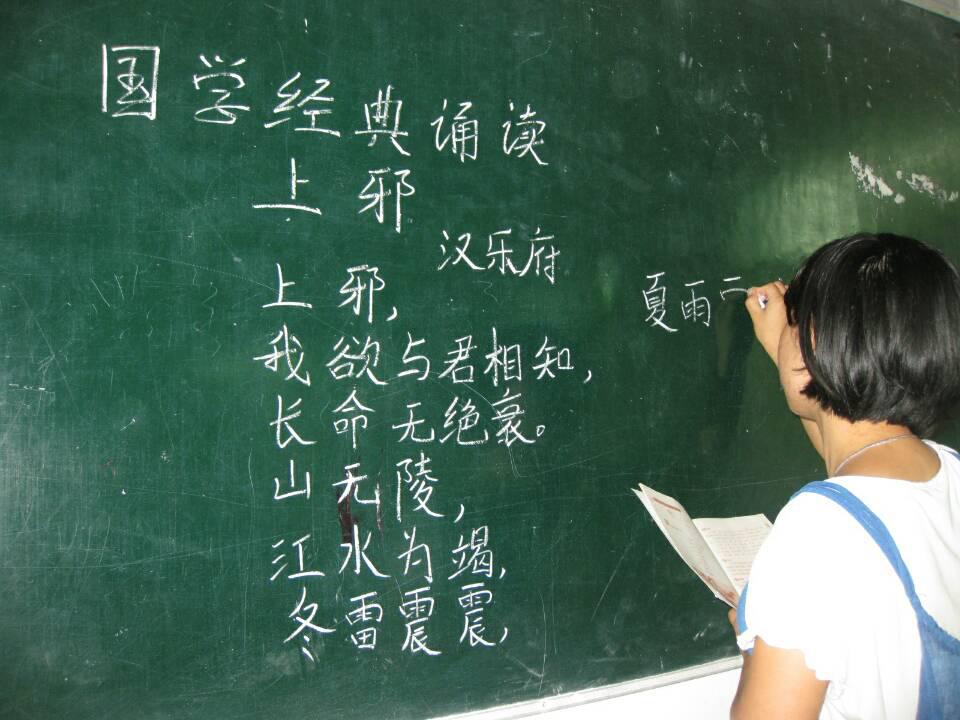 国学经典诵读
上邪
汉乐府
上邪,
我欲与君相知,
长命无绝衰。
山无陵,
江水为竭,
冬雷震震,
夏雨